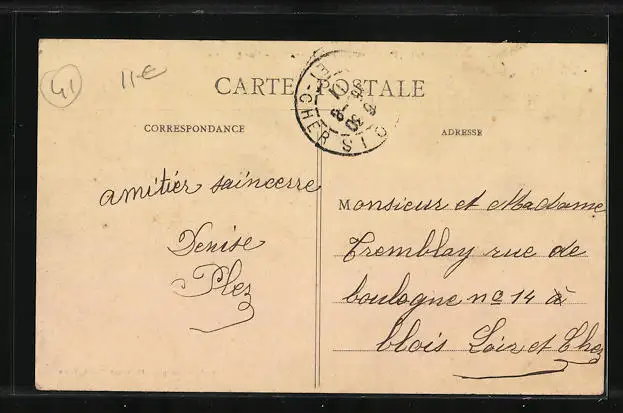 41
11-€
CARTE POSTALE
CORRESPONDANCE
ADRESSE
amitier saincerre
Denise
Plez
Monsieur et Madame
Tremblay rue de
boulogne no 14 à
blois Loir et Cher
ET-CHER